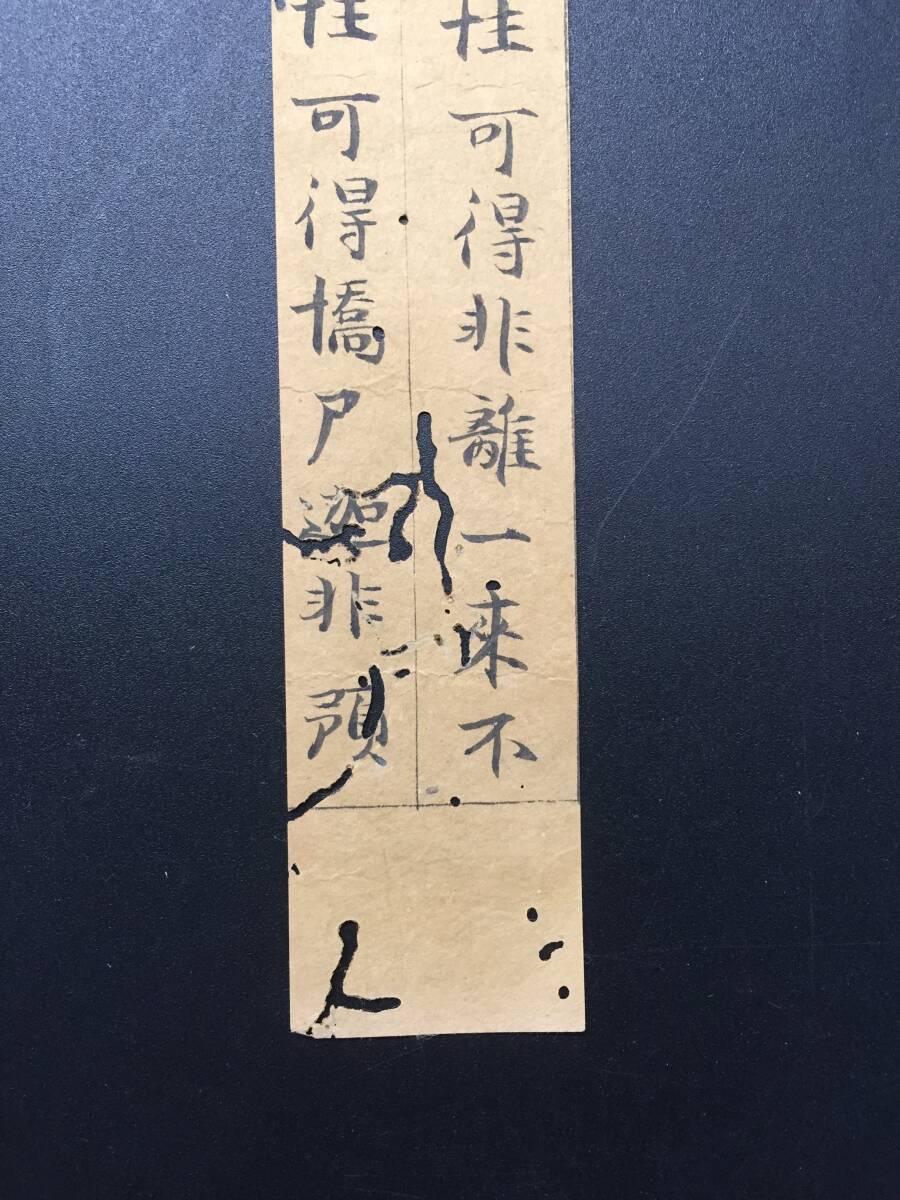 性可得非離一來不
性可得憍尸迦非預